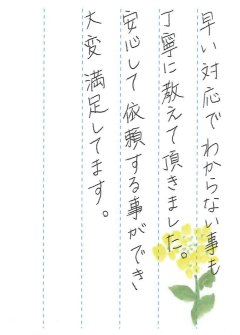 早い対応でわからない事も
丁寧に教えて頂きました。
安心して依頼する事ができ
大変満足してます。